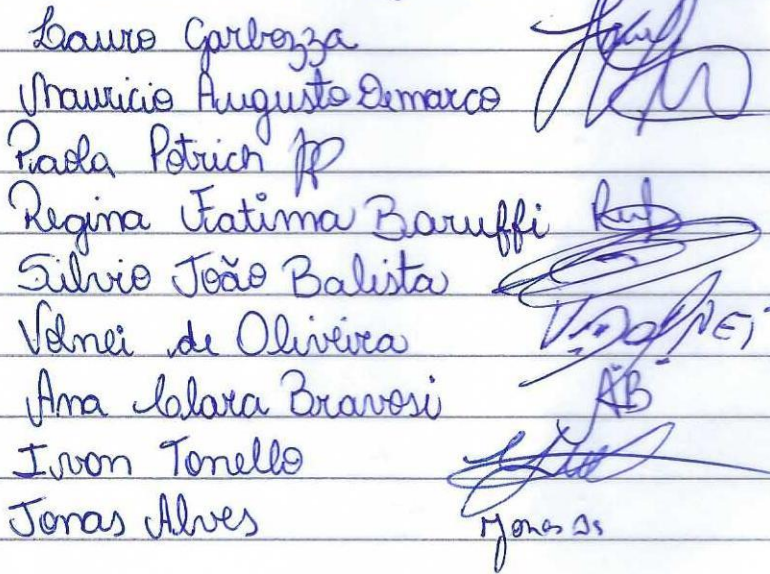 Lauro Garbozza
Mauricio Augusto Demarco
Paola Potrich PP
Regina Fatima Baruffi
Silvio João Balista
Volnei de Oliveira
Ana Clara Bravosi AB
Ivon Tonello
Jonas Alves